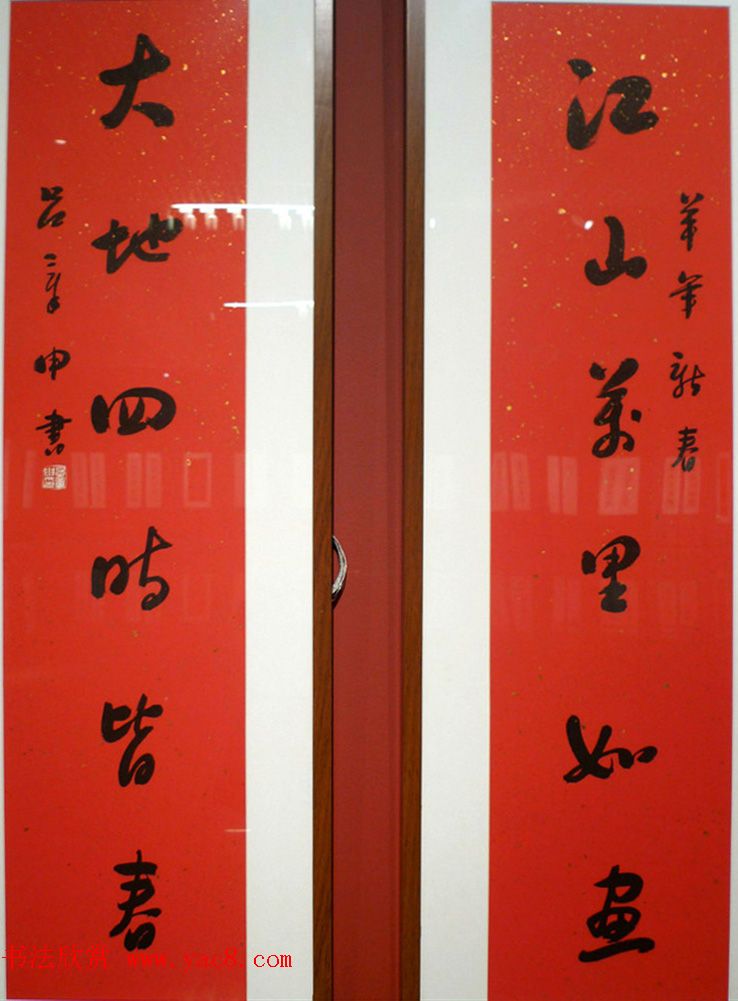 江山萬里如畫
羊年新春
大地四時皆春
吕章申書
书法欣赏 www.yac8.com